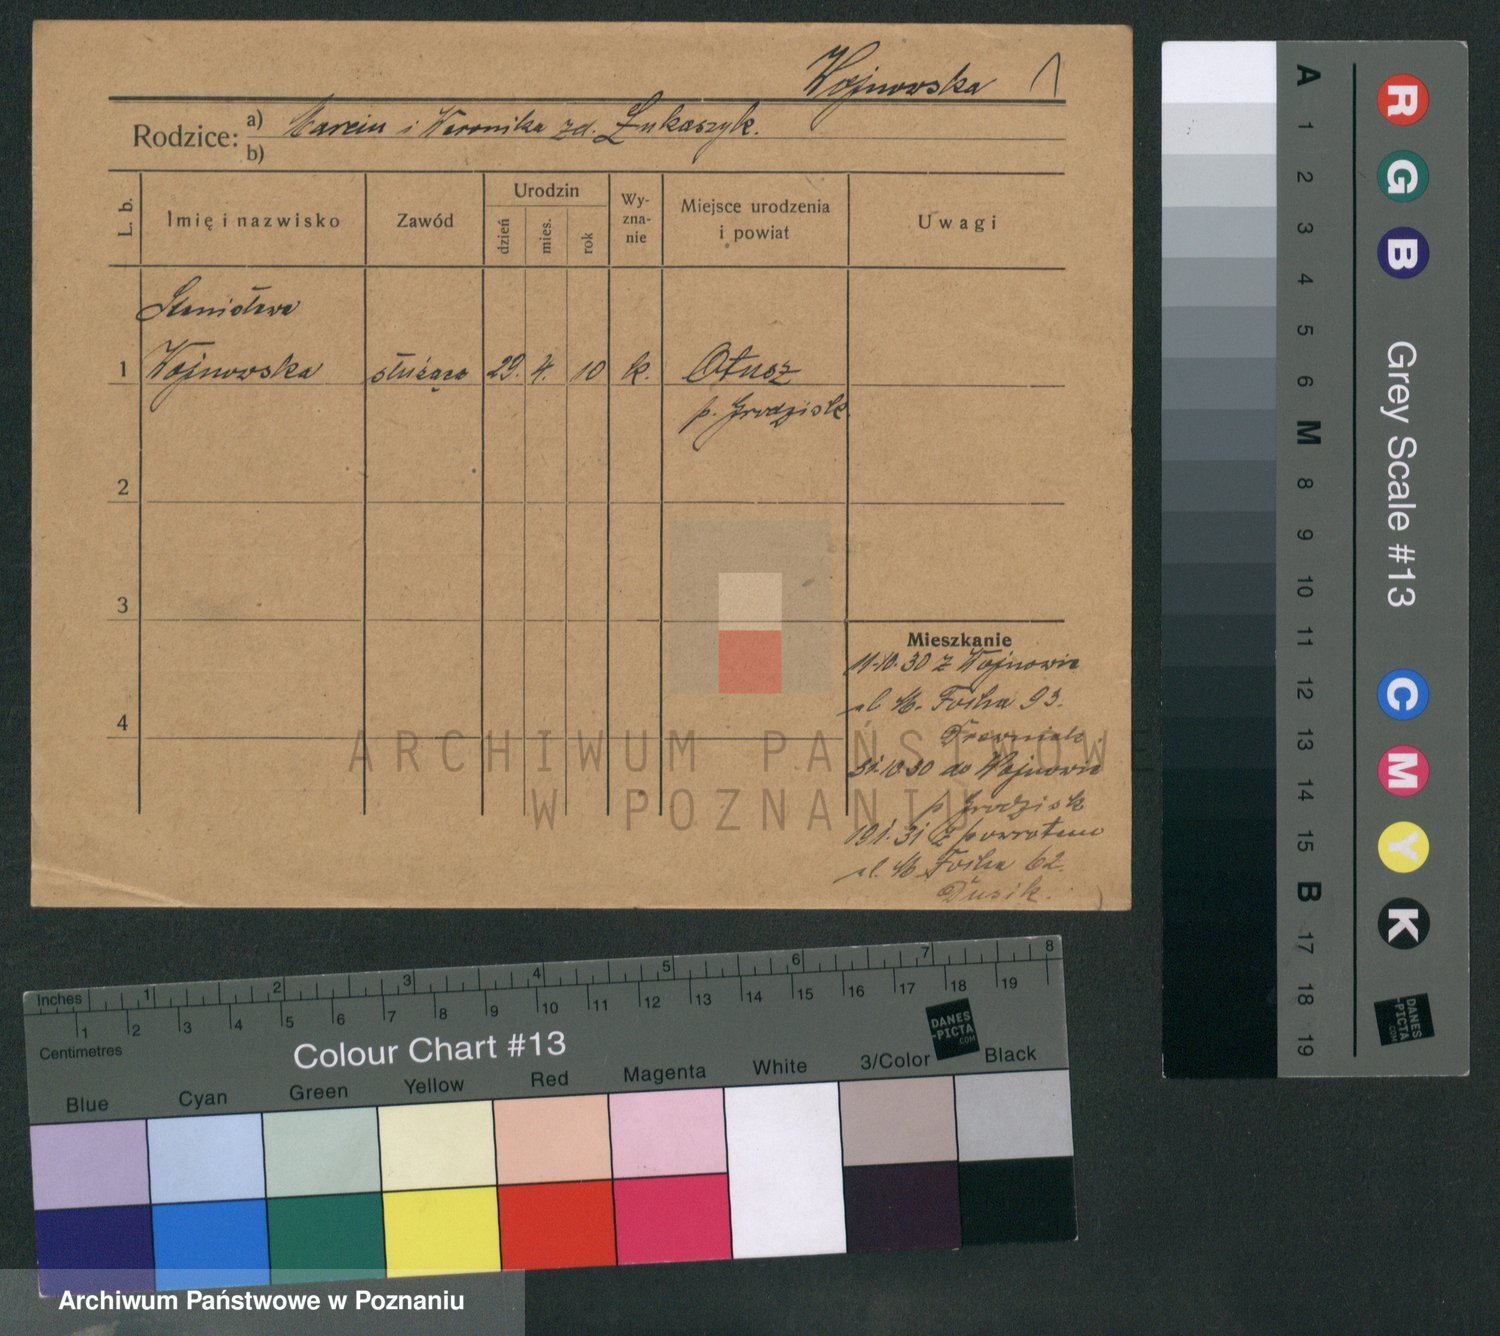 Wojnowska
Rodzice: a) Marcin i Weronika zd. Łukaszyk.
b)
L. b.
Imię i nazwisko
Zawód
Urodzin
dzień
mies.
rok
Wy-
zna-
nie
Miejsce urodzenia
i powiat
Uwagi
Stanisława
1 Wojnowska służąca 29. 4. 10 k. Otusz
p. Grodzisk
2
3
4
Mieszkanie
11.10.30 z Wojnowic
ul. M. Focha 93.
31.10.30 do Wojnowic
p. Grodzisk
19.1.31 z powrotem
ul. M. Focha 62.
Dusik.
ARCHIWUM PAŃSTWOWE
W POZNANIU
A 1 2 3 4 5 6 M 8 9 10 11 12 13 14 15 B 17 18 19
R G B
Grey Scale #13
C M Y K
DANES
-PICTA
.COM
Inches 1 2 3 4 5 6 7 8
1 2 3 4 5 6 7 8 9 10 11 12 13 14 15 16 17 18 19
Centimetres
Colour Chart #13
DANES
-PICTA
.COM
Blue Cyan Green Yellow Red Magenta White 3/Color Black
Archiwum Państwowe w Poznaniu